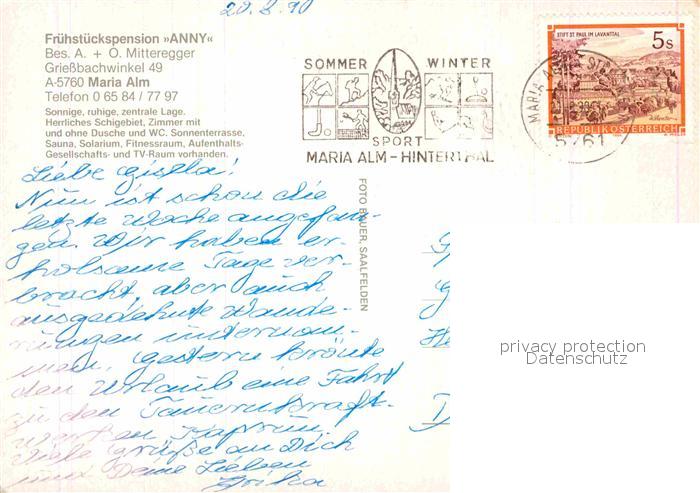 20.8.90
Frühstückspension »ANNY«
Bes. A. + O. Mitteregger
Grießbachwinkel 49
A-5760 Maria Alm
Telefon 0 65 84 / 77 97
Sonnige, ruhige, zentrale Lage.
Herrliches Schigebiet, Zimmer mit
und ohne Dusche und WC. Sonnenterrasse,
Sauna, Solarium, Fitnessraum, Aufenthalts-
Gesellschafts- und TV-Raum vorhanden.
SOMMER WINTER
SPORT
MARIA ALM - HINTERTHAL
STIFT ST. PAUL IM LAVANTTAL
5 s
REPUBLIK ÖSTERREICH
MARIA
5761
Liebe
Nun ist schon die
letzte Woche angefan-
gen. Wir haben er-
holsame Tage ver-
bracht, aber auch
ausgedehnte Wande-
rungen unternom-
men. Gestern krönte
den Urlaub eine Fahrt
zu den Tauernkraft-
werken Kaprun.
Viele Grüße an Dich
und Deine Lieben
Erika
FOTO BAUER, SAALFELDEN
privacy protection
Datenschutz